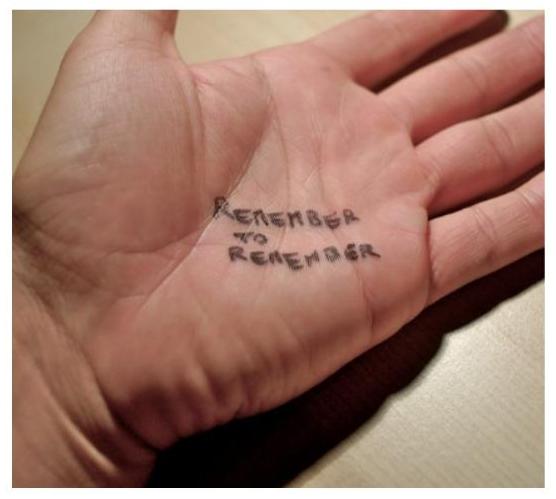 REMEMBER
TO
REMEMBER